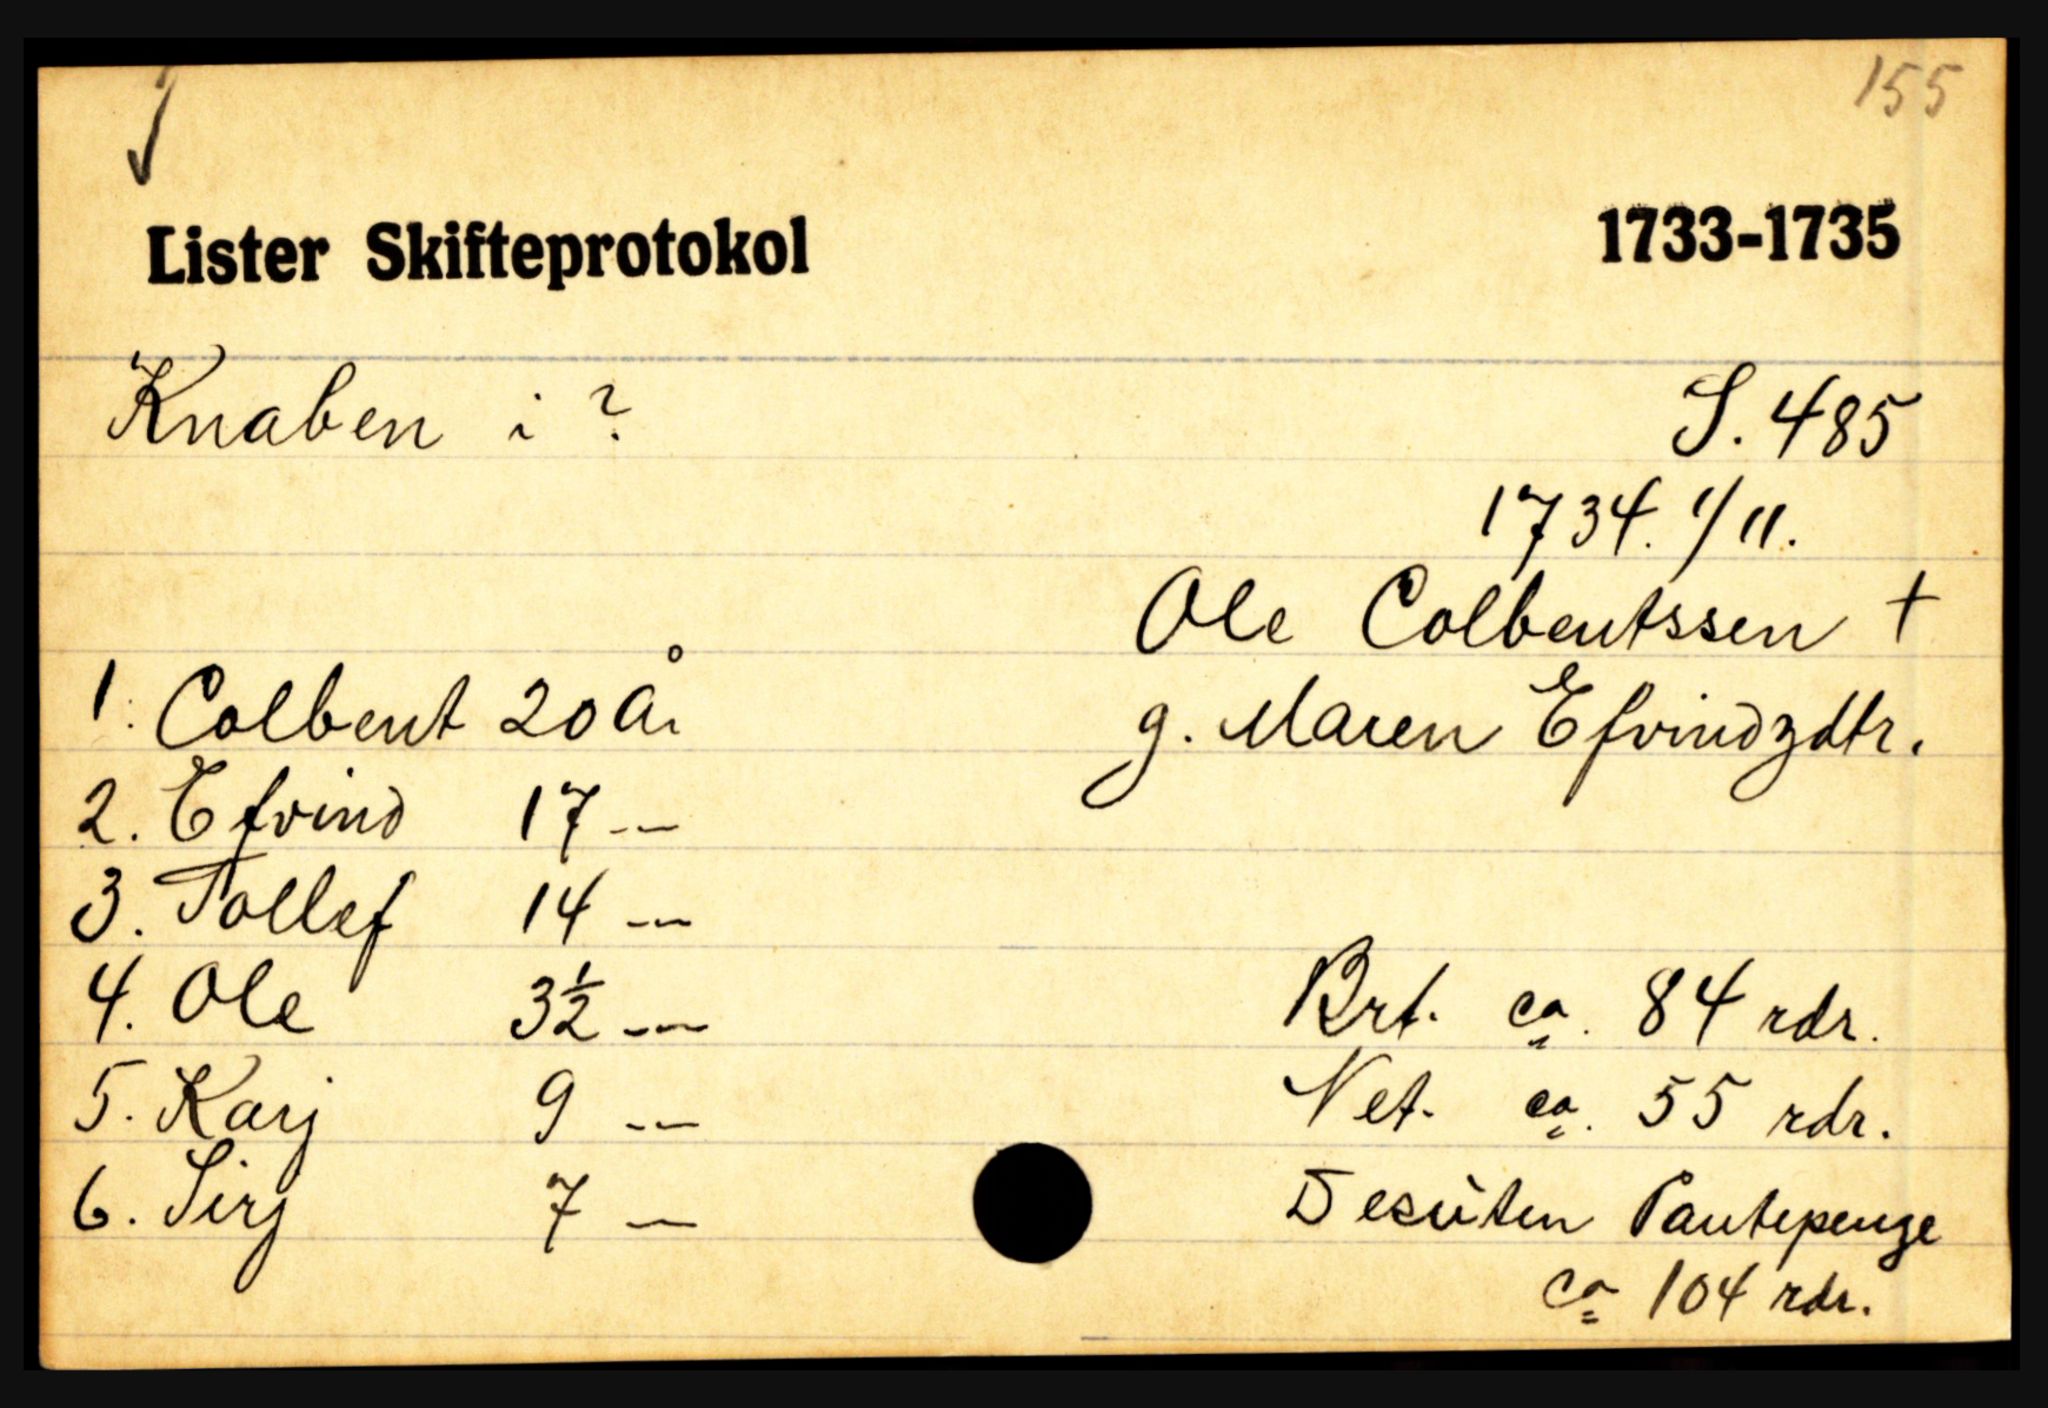 155
Lister Skifteprotokol 1733-1735
Knaben i ? S. 485
1734. 1/11.
Ole Colbentssen +
1. Colbent 20 år g. Maren Efvindzdtr.
2. Efvind 17 —
3. Tollef 14 —
4. Ole 3½ — Brt. ca. 84 rdr.
5. Karj 9 — Net. ca. 55 rdr.
6. Sirj 7 — Desuten Pantepenge
ca 104 rdr.